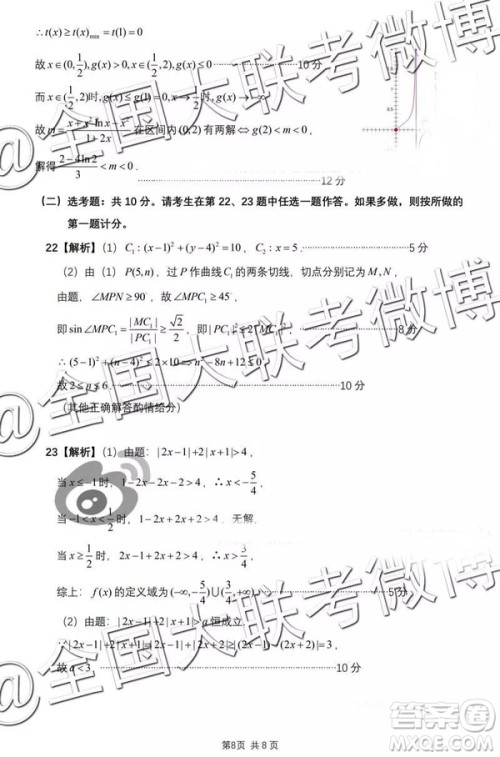 ∴t(x)≥t(x)min=t(1)=0
故x∈(0,1/2),g(x)>0,x∈(1/2,2),g(x)≤0 ……10分
而x∈(1/2,2)时,g(x)≤g(1)=0,x→1/2时,g(x)→-∞,
故m=(x+x²lnx-x³)/(1-2x)在区间内(0,2)有两解⇔g(2)<m<0.
解得(2-4ln2)/3<m<0. ……12分
(二) 选考题:共10分。请考生在第22、23题中任选一题作答。如果多做,则按所做的
第一题计分。
22【解析】(1) C₁:(x-1)²+(y-4)²=10, C₂:x=5. ……5分
(2) 由(1) P(5,n),过P作曲线C₁的两条切线,切点分别记为M,N,
由题,∠MPN≥90°,故∠MPC₁≥45°,
即sin∠MPC₁=|MC₁|/|PC₁|≥√2/2,即|PC₁|²≤2|MC₁|² ……8分
∴(5-1)²+(n-4)²≤2×10⇒n²-8n+12≤0.
故2≤n≤6. ……10分
(其他正确解答酌情给分)
23【解析】(1) 由题:|2x-1|+2|x+1|>4,
当x≤-1时,1-2x-2x-2>4,∴x<-5/4,
当-1<x<1/2时,1-2x+2x+2>4,无解,
当x≥1/2时,2x-1+2x+2>4,∴x>3/4,
综上:f(x)的定义域为(-∞,-5/4)⋃(3/4,+∞). ……5分
(2) 由题:|2x-1|+2|x+1|>a恒成立,
∵|2x-1|+2|x+1|=|2x-1|+|2x+2|≥|(2x-1)-(2x+2)|=3,
故a<3. ……10分
第8页 共8页
@全国大联考微博
@全国大联考微博
@全国大联考微博
答案圈
MXQE.COM